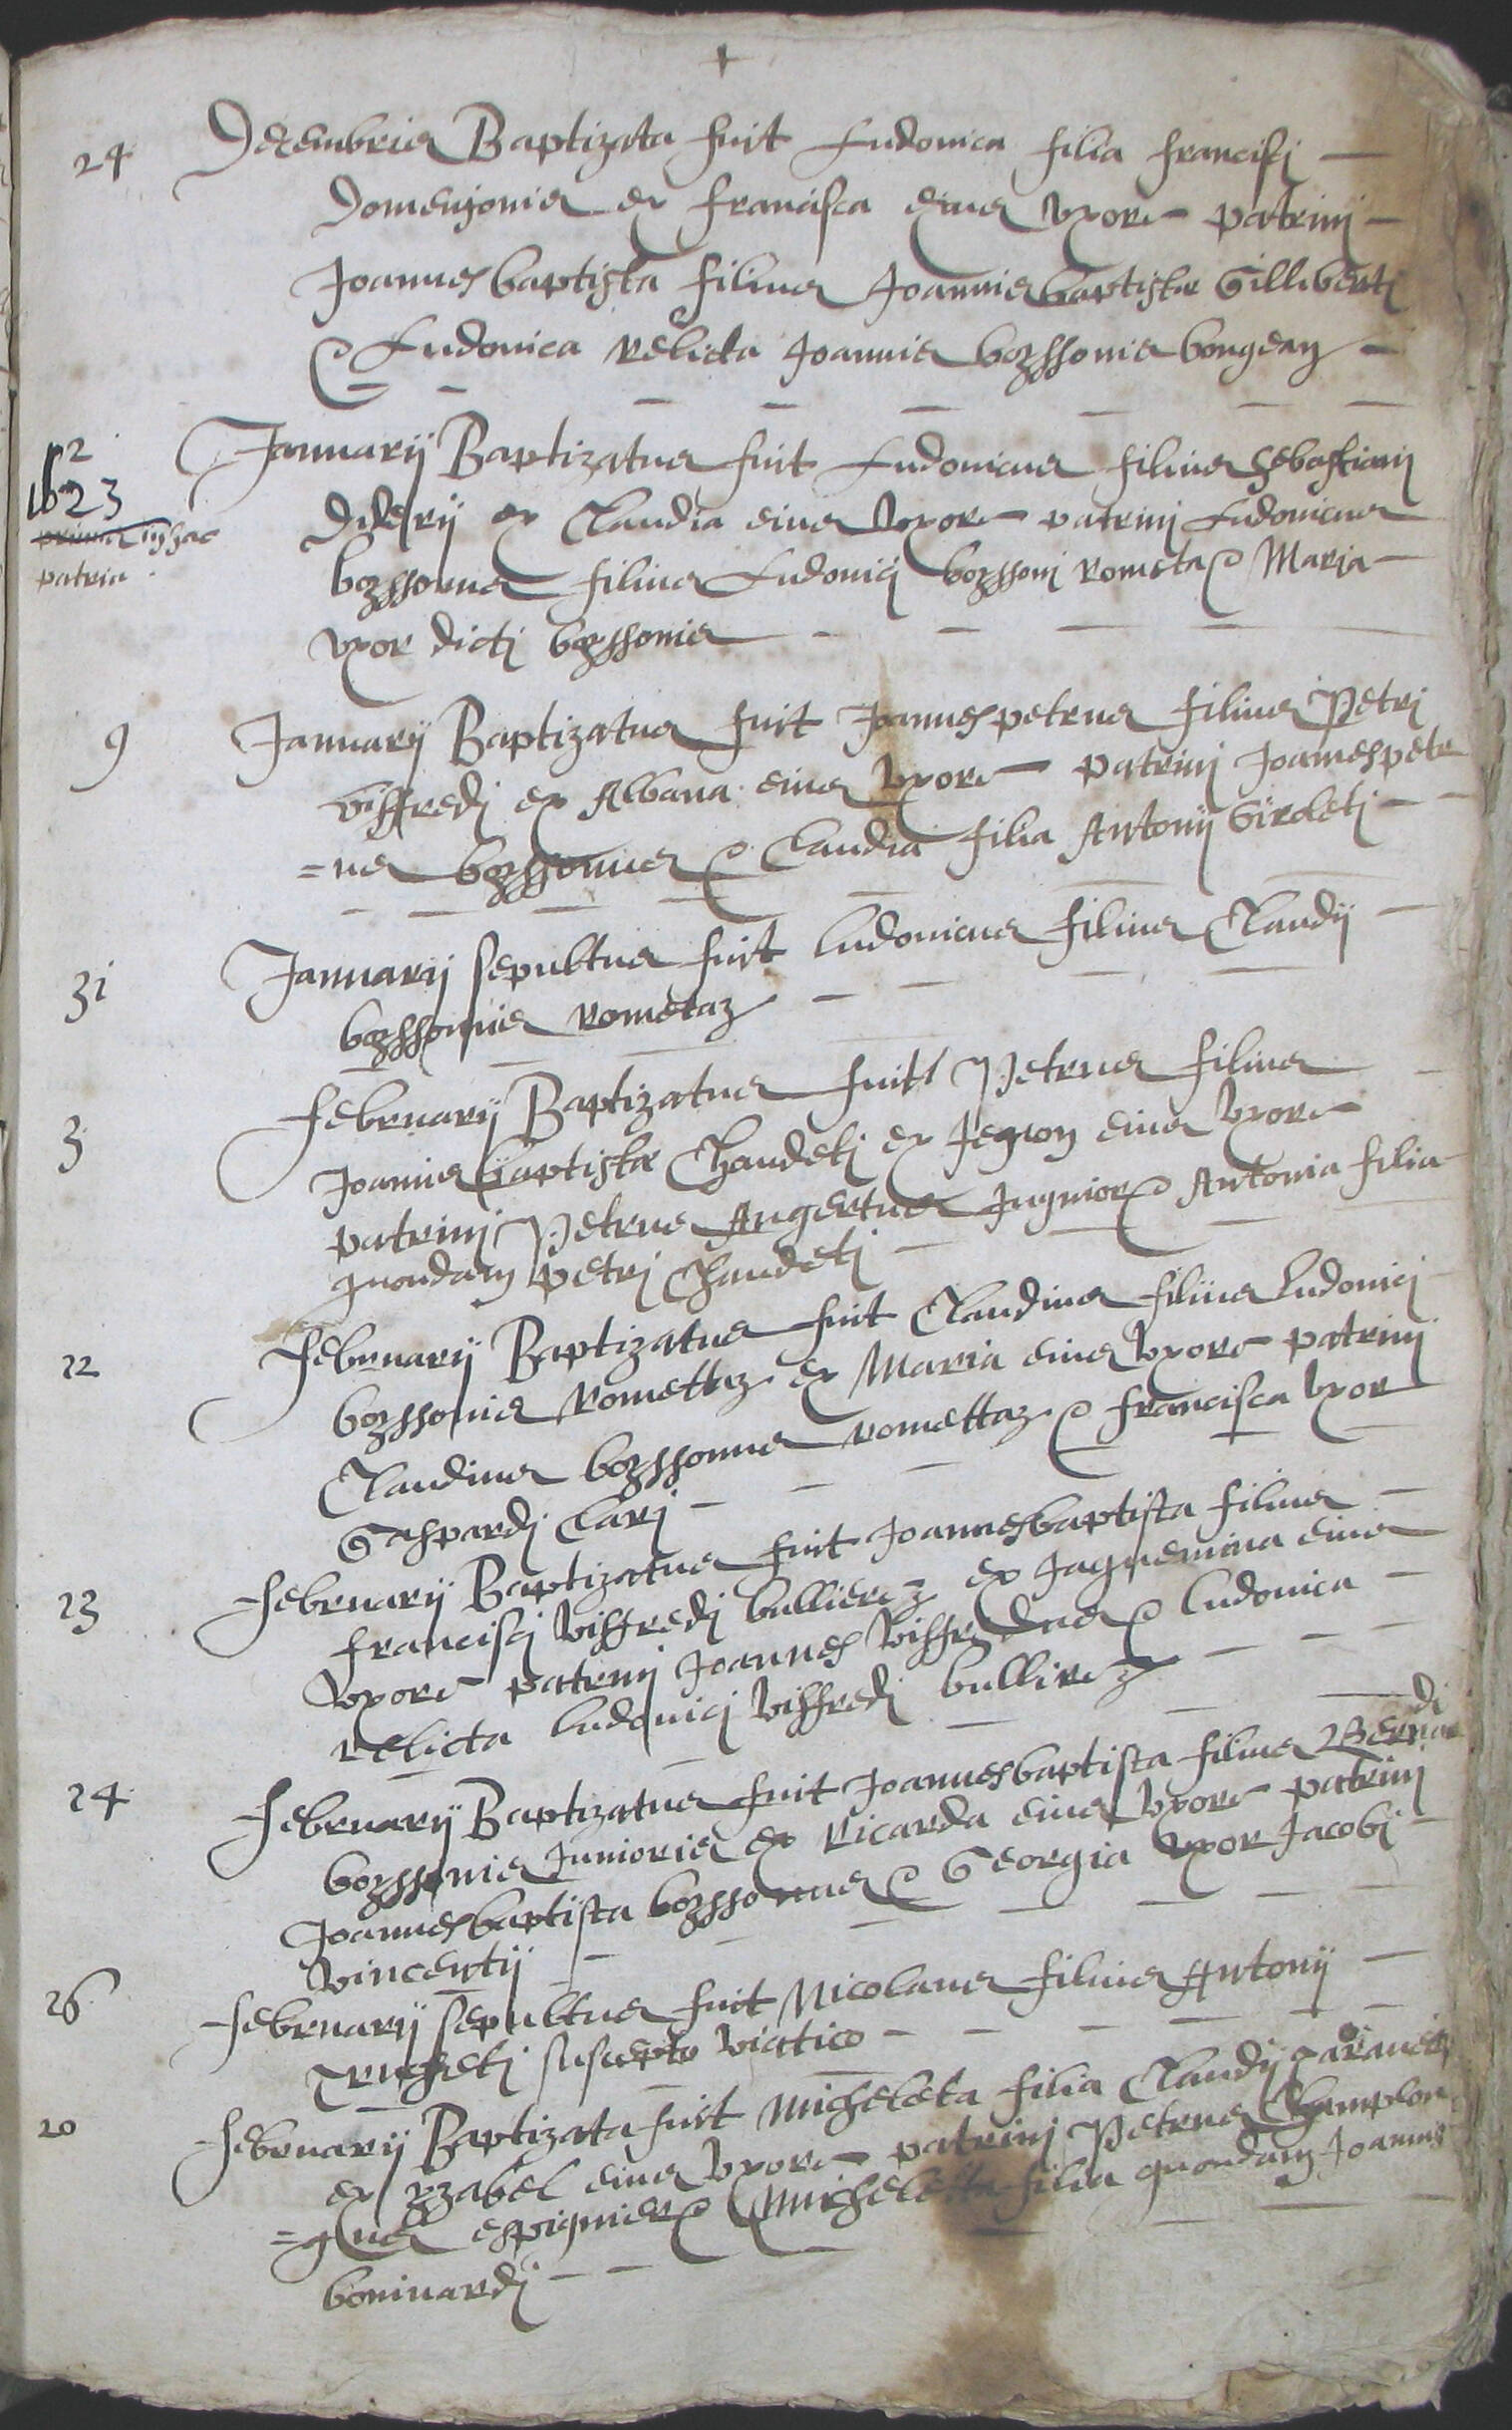 24 Decembris Baptizata fuit Ludovica filia francisci
Domenjonis ex francisca eius vxore patrini
Joannesbaptista filius Joannisbaptistæ Gilliberti
& Ludovica relicta Joannis bozssonis bongean
2 Januarij Baptizatus fuit Ludovicus filius Sebastiani
1623
patria
Deserij ex Claudia eius vxore patrini Ludovicus
bozssonus filius Ludovici bozssoni rometa & Maria
vxor dicti bozssonis
9 Januarij Baptizatus fuit Joannespetrus filius Petri
viffredi ex Albana eius vxore patrini Joannespetr
=us bozssonus & Claudia filia Antonij Giroleti
31 Januarij sepultus fuit ludovicus filius Claudij
bozssonis rometaz
3 februarij Baptizatus fuit Petrus filius
Joannisbaptistæ Chaudeti ex eius vxore
patrini Petrus Angertus Jugnior & Antonia filia
quondam petri Chaudeti
22 februarij Baptizatus fuit Claudius filius Ludovici
bozssonis romettaz ex Maria eius vxore patrini
Claudius bozssonus romettaz & francisca vxor
Gaspardi Clari
23 februarij Baptizatus fuit Joannesbaptista filius
francisci viffredi bullierez ex Jaquemina eius
vxore patrini Joannes viffredus & ludovica
relicta ludovici viffredi bullirez
24 februarij Baptizatus fuit Joannesbaptista filius Bernardi
bozssonis Junioris ex Ricarda eius vxore patrini
Joannesbaptista bozssonus & Georgia vxor Jacobi
vincentij
26 februarij sepultus fuit Nicolaus filius Antonij
Trucheti suscepto viatico
20 februarij Baptizata fuit Micheleta filia Claudij
ex yzabel eius vxore patrini Petrus Champlon
=gnus espignier & Micheleta filia quondam Joannis
boniuardi